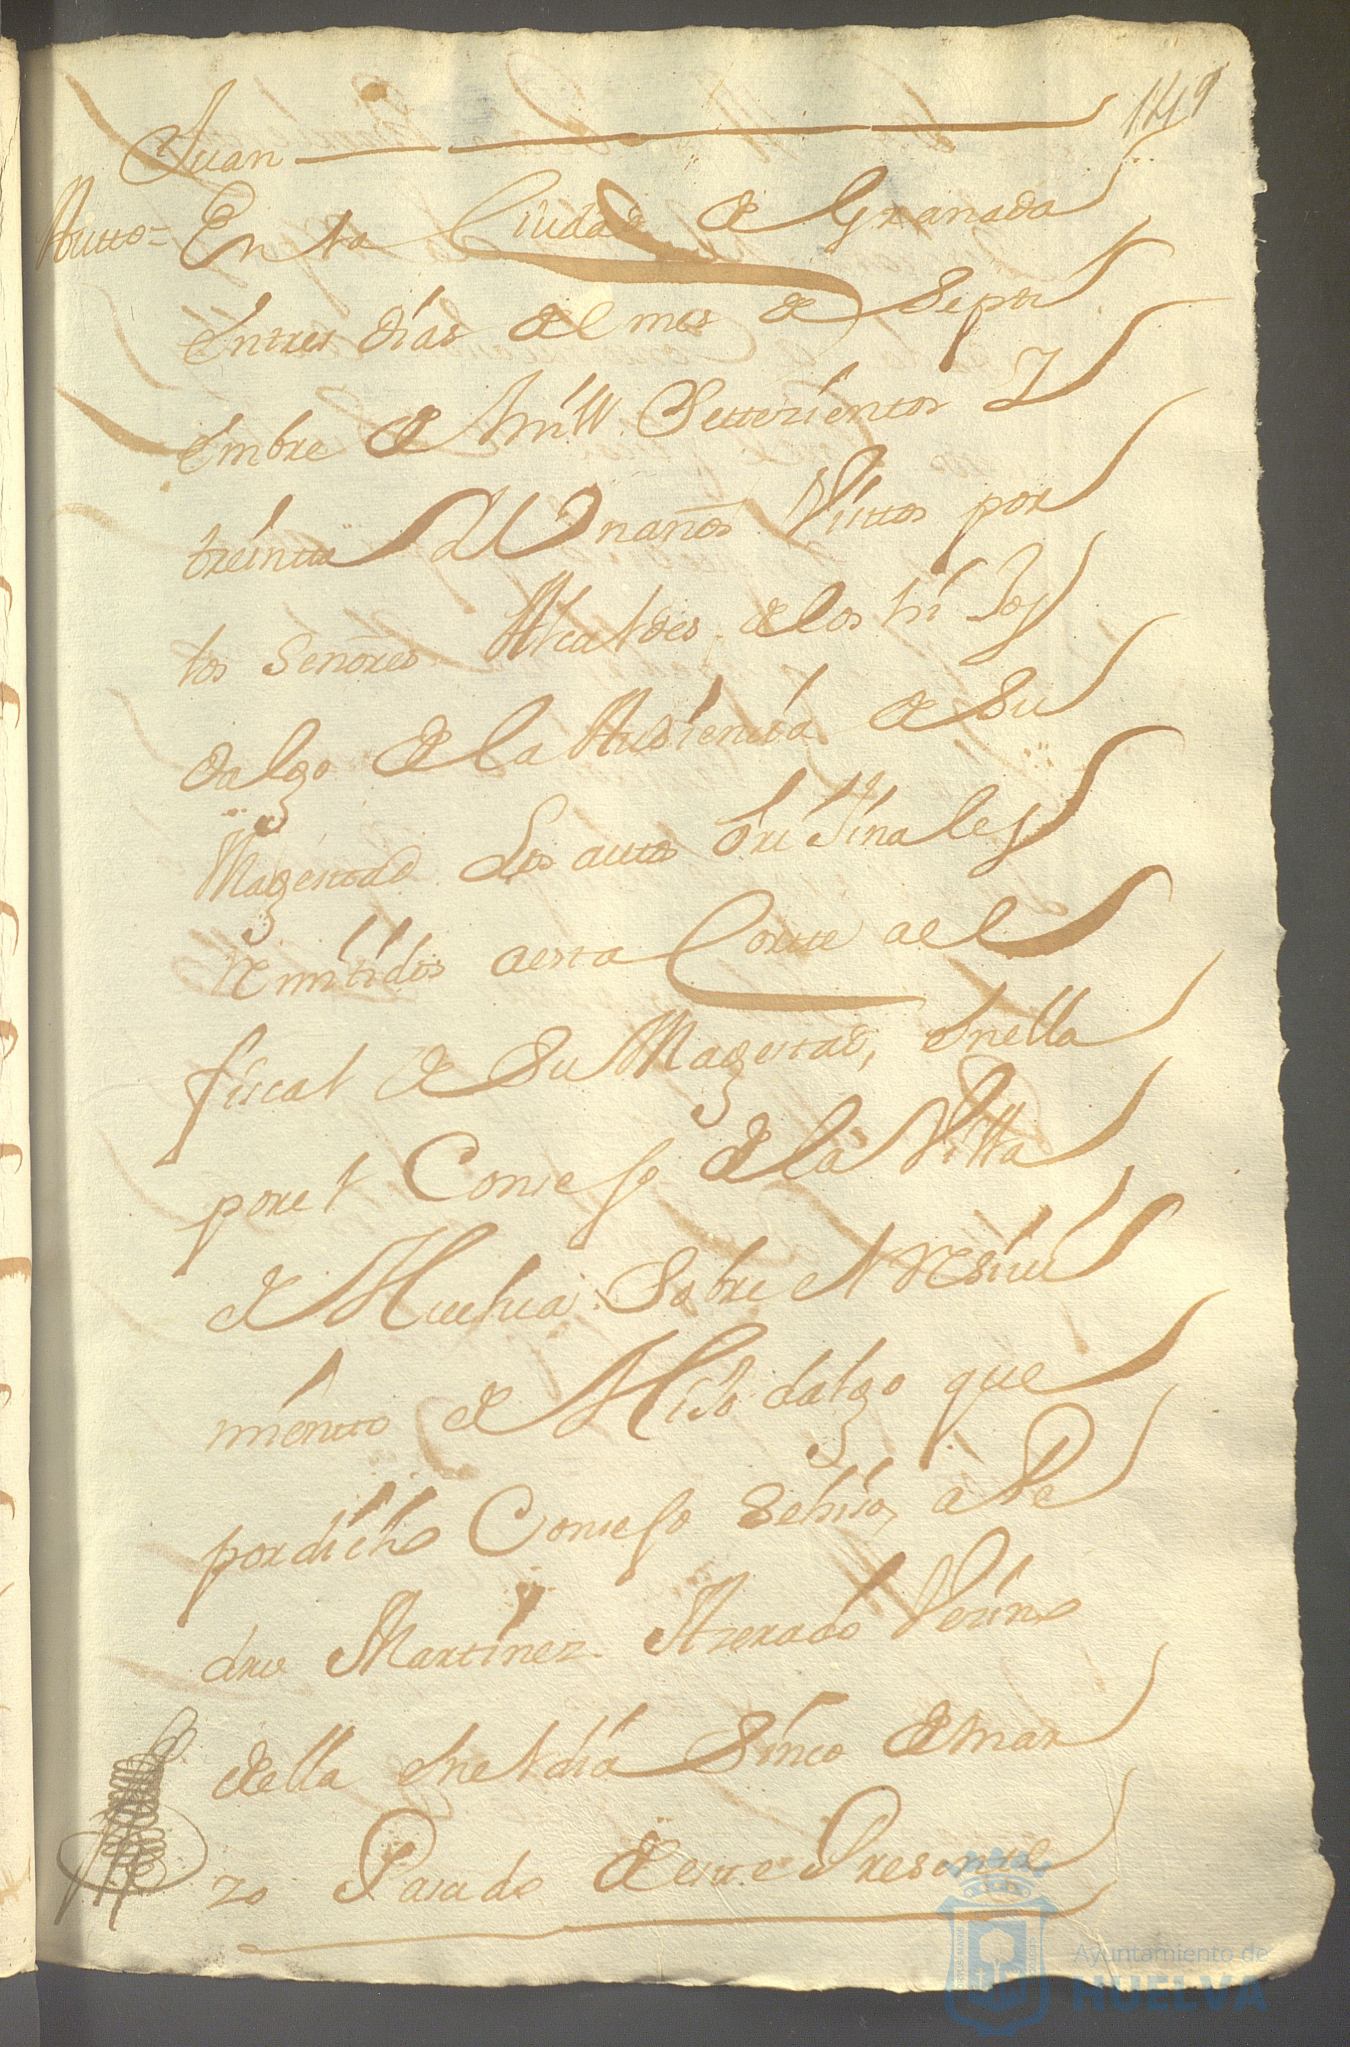 149
Juan
Autto = En la Ciudad de Granada
entres dias del mes de Septi
embre de mill Settezientos Y
treintta Y Un años Visttos por
los Señores Alcaldes de los hijos
dalgo de la Audiencia de Su
Magestad Los autos Orijinales
Remitidos a esta Cortte a el
fiscal de Su Magestad, en ella
por el Consejo de la Villa
de Huelva Sobre el Reseui
mientto de Hijo dalgo que
por dicho Consejo Sehizo, a Pe
dro Martinez Azerado Vezino
della en el dia Sinco de mar
zo Pasado de este Presente
Ayuntamiento de
HUELVA